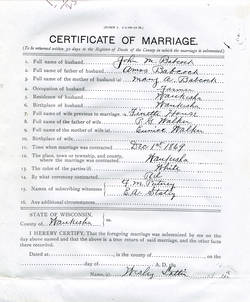 CERTIFICATE OF MARRIAGE.
(To be returned within 30 days to the Register of Deeds of the County in which the marriage is solemnized.)
1. Full name of husband John M. Babcock
2. Full name of father of husband Amos Babcock
3. Full name of the mother of husband Mary A. Babcock
4. Occupation of husband Farmer
5. Residence of husband Waukesha
6. Birthplace of husband Waukesha
7. Full name of wife previous to marriage
8. Full name of the father of wife Walker
9. Full name of the mother of wife Eunice Walker
10. Birthplace of wife
11. Time when marriage was contracted Dec 1st 1869
12. The place, town or township, and county, where the marriage was contracted Waukesha
13. The color of the parties White
14. By what ceremony contracted
15. Names of subscribing witnesses F. M. Putney
E. A. Staley
16. Any additional circumstances
STATE OF WISCONSIN,
County of Waukesha
I HEREBY CERTIFY, That the foregoing marriage was solemnized by me on
the day above named and that the above is a true return of said marriage, and the other facts
there recorded.
Dated at , in the county of , on the
day of A. D. 18
Name, Wesley